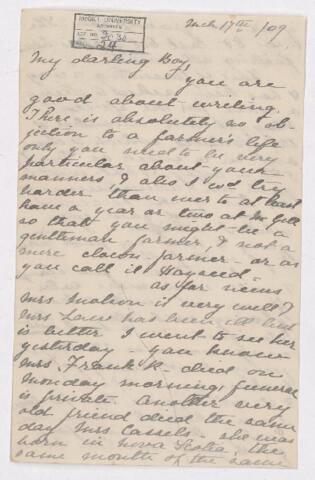 Mch 17th /09
McGILL UNIVERSITY
ARCHIVES
ACC. NO.
REF. 24
My darling Boy,
you are
good about writing.
There is absolutely no ob-
jection to a farmer's life
only you need to be very
particular about your
manners & also I wd try
harder than ever to at least
have a year or two at McGill
so that you might be a
gentleman farmer, & not a
mere clown farmer - or as
you call it Hayseed -
as for news
Mrs Molson is very well &
Mrs Law has been ill but
is better I went to see her
yesterday - you know
Mrs. Frank R - died on
Monday morning, funeral
is private. Another very
old friend died the same
day Mrs Cassels - she was
born in Nova Scotia, the
same month of the same